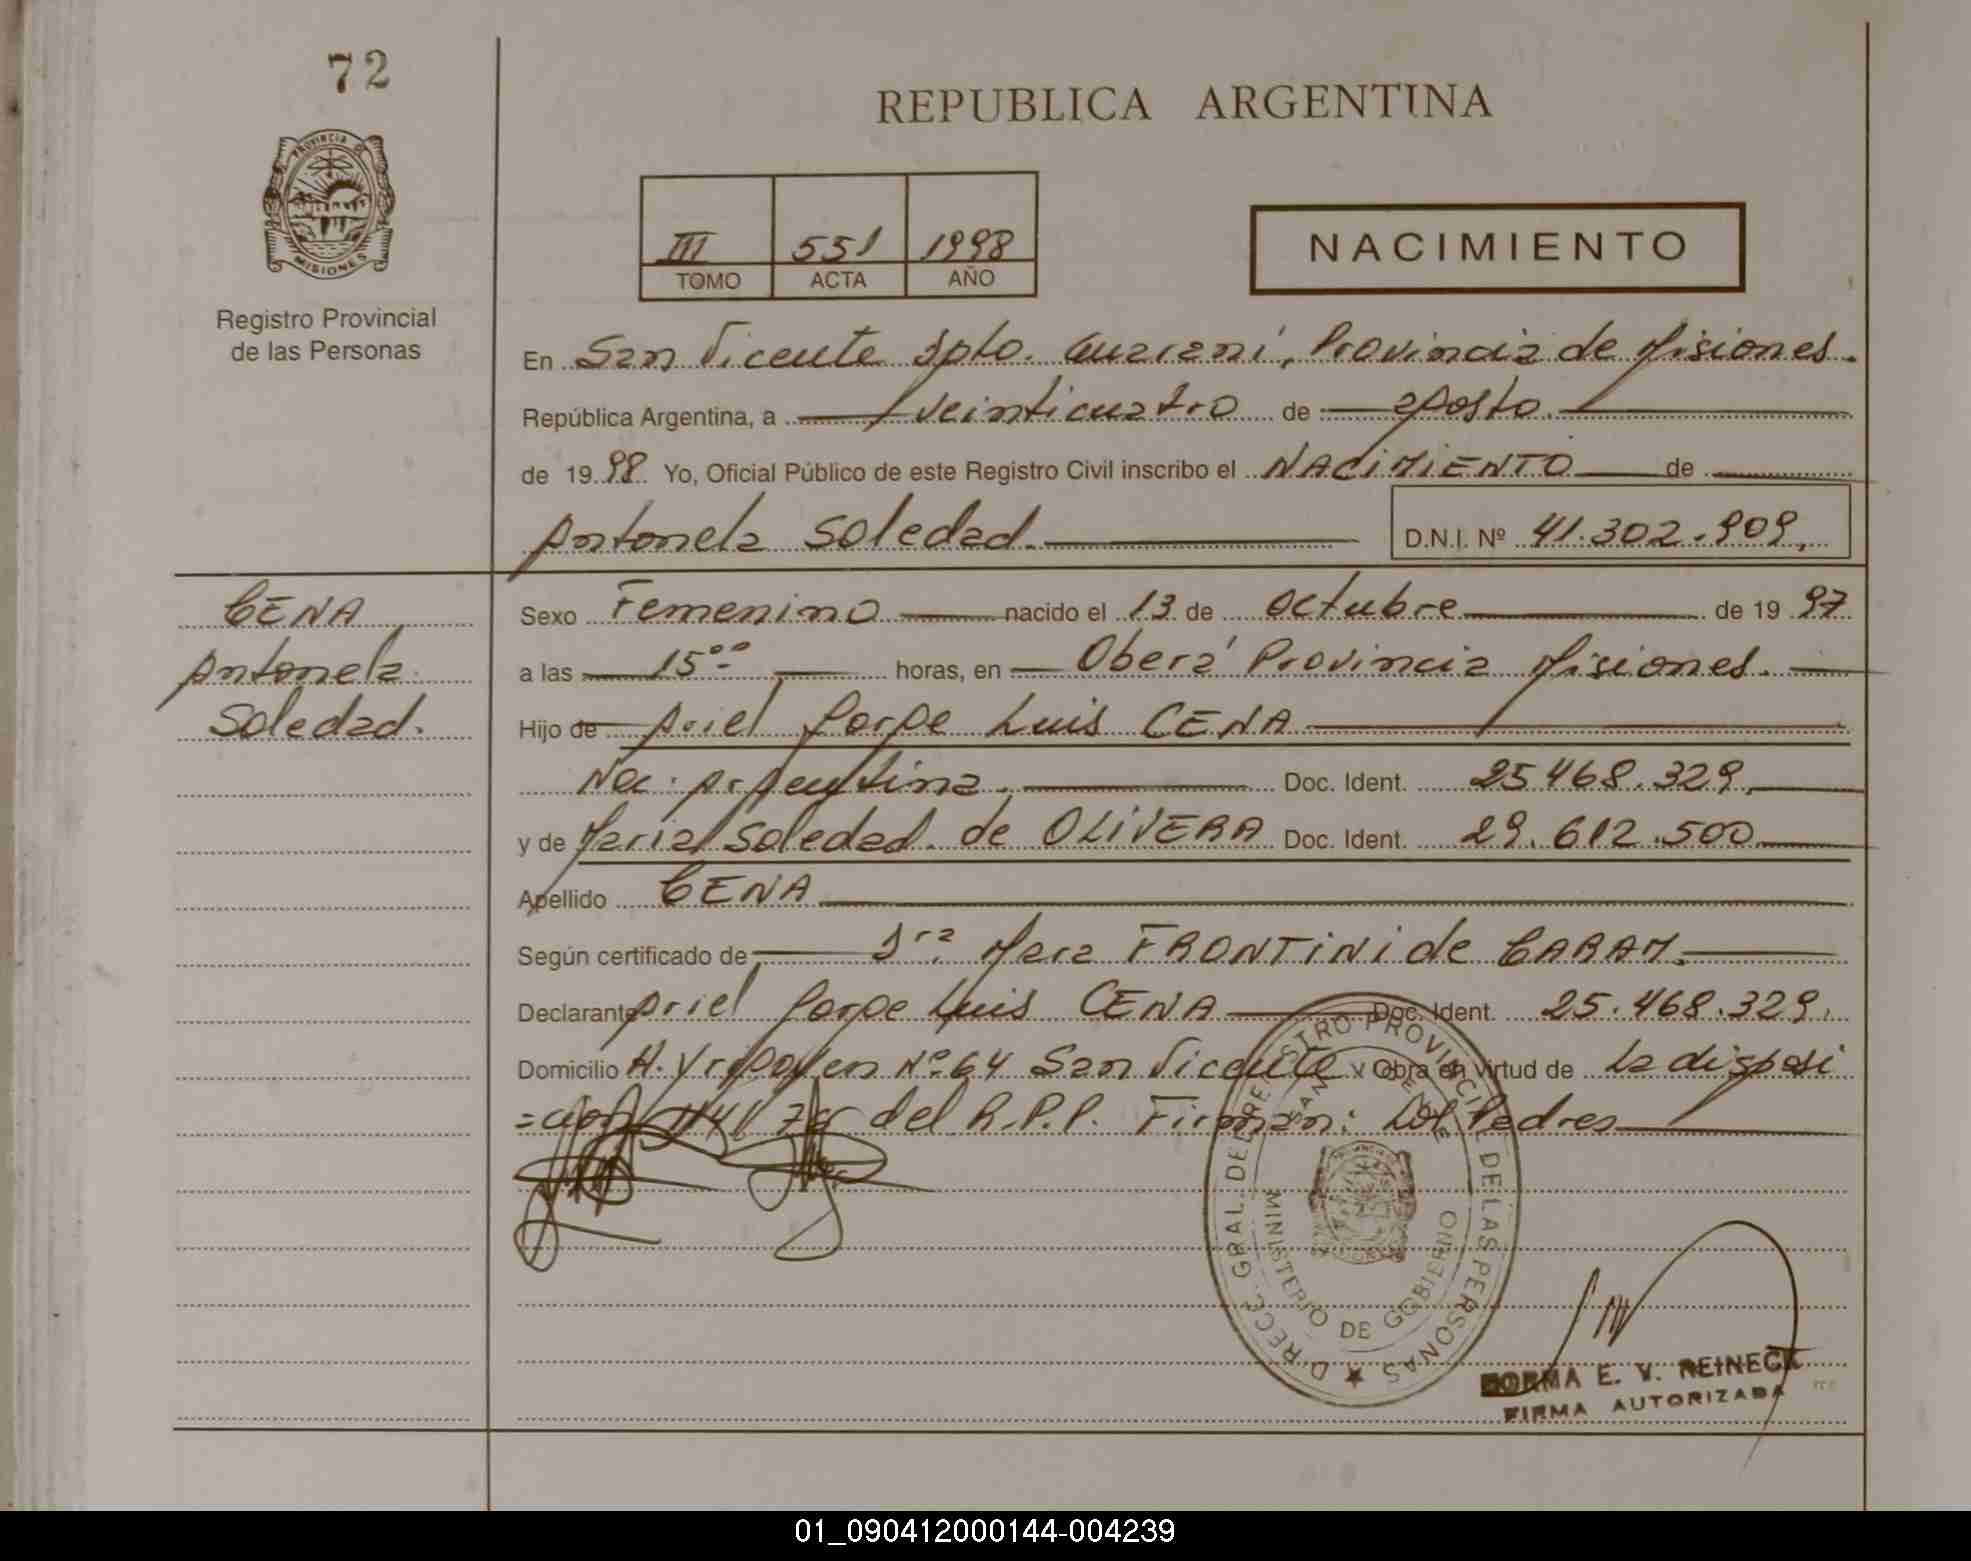 72
REPUBLICA ARGENTINA
PROVINCIA DE
MISIONES
Registro Provincial
de las Personas
III 551 1998
TOMO ACTA AÑO
NACIMIENTO
En San Vicente Dpto. Guaraní, Provincia de Misiones.
República Argentina, a veinticuatro de agosto.
de 1998 Yo, Oficial Público de este Registro Civil inscribo el NACIMIENTO de
Antonela Soledad. D.N.I. Nº 41.302.909,
CENA
Antonela
Soledad.
Sexo Femenino nacido el 13 de octubre de 1997
a las 15⁰⁰ horas, en Oberá Provincia Misiones.
Hijo de Ariel Jorge Luis CENA
Nac. Argentina. Doc. Ident. 25.468.329,
y de Maria Soledad de OLIVERA Doc. Ident. 29.612.500
Apellido CENA
Según certificado de Dra. Mara FRONTINI de CARAM.
Declarante Ariel Jorge Luis CENA Doc. Ident. 25.468.329.
Domicilio H. Yrigoyen Nº 64 San Vicente y Obra en virtud de la disposi
=cion 1141/78 del R.P.P. Firman: Los Padres
DIRECC. GRAL. DEL REGISTRO PROVINCIAL DE LAS PERSONAS
SAN VICENTE
MINISTERIO DE GOBIERNO
NORMA E. V. REINECK
FIRMA AUTORIZADA
01_090412000144-004239